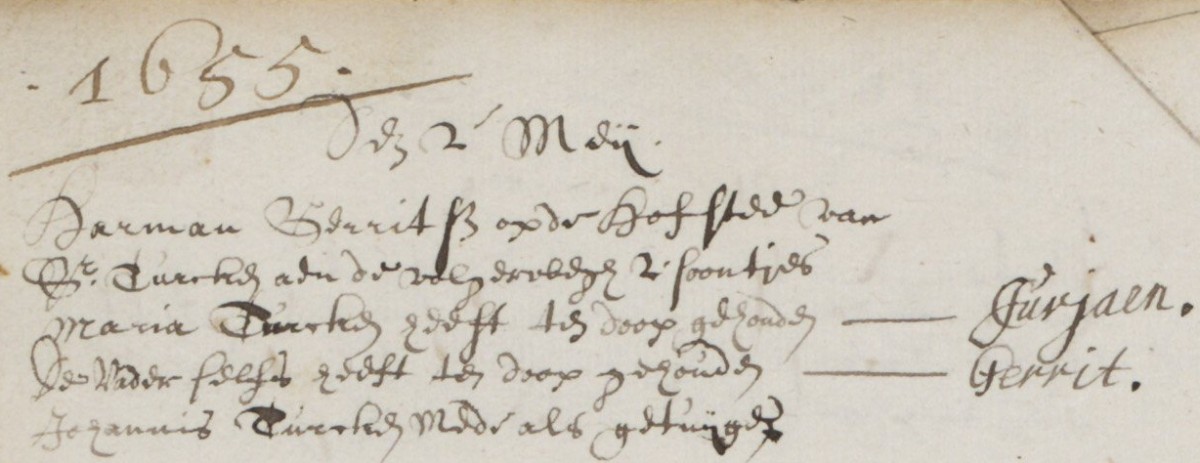 1655.
Den 2 Meij.
Harman Gerritsz op de Hofstede van
Sr. Turcken aen de 2 soontjes
Maria Turcken heeft ten doop gehouden — Jurjaen.
De Vader selfs heeft ten doop gehouden — Gerrit.
Johannis Turcken Mede als getuijgen